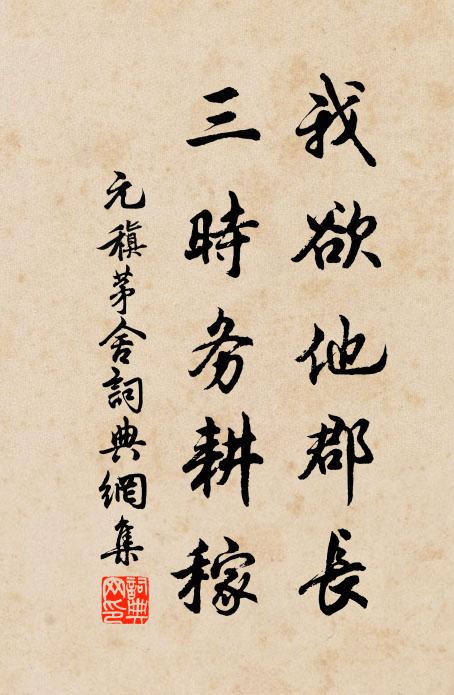 我欲他郡長
三時务耕稼
元稹茅舍詞典網集
詞典网印